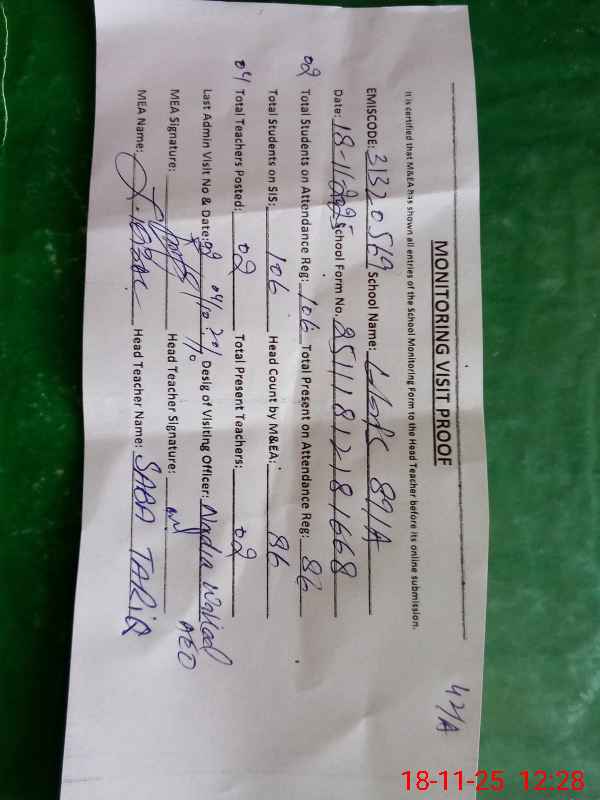 42/A
MONITORING VISIT PROOF
It is certified that M&EA has shown all entries of the School Monitoring Form to the Head Teacher before its online submission.
EMISCODE: 31320569 School Name: 89/A
Date: 18-11-2025 School Form No. 25111812181668
02 Total Students on Attendance Reg: 106 Total Present on Attendance Reg: 86
Total Students on SIS: 106 Head Count by M&EA: 86
04 Total Teachers Posted: 02 Total Present Teachers: 02
Last Admin Visit No & Date: 02 04/10 Desig of Visiting Officer: Nadra Waheed
AEO
MEA Signature: Head Teacher Signature:
MEA Name: Head Teacher Name: SABA TARIQ
18-11-25 12:28